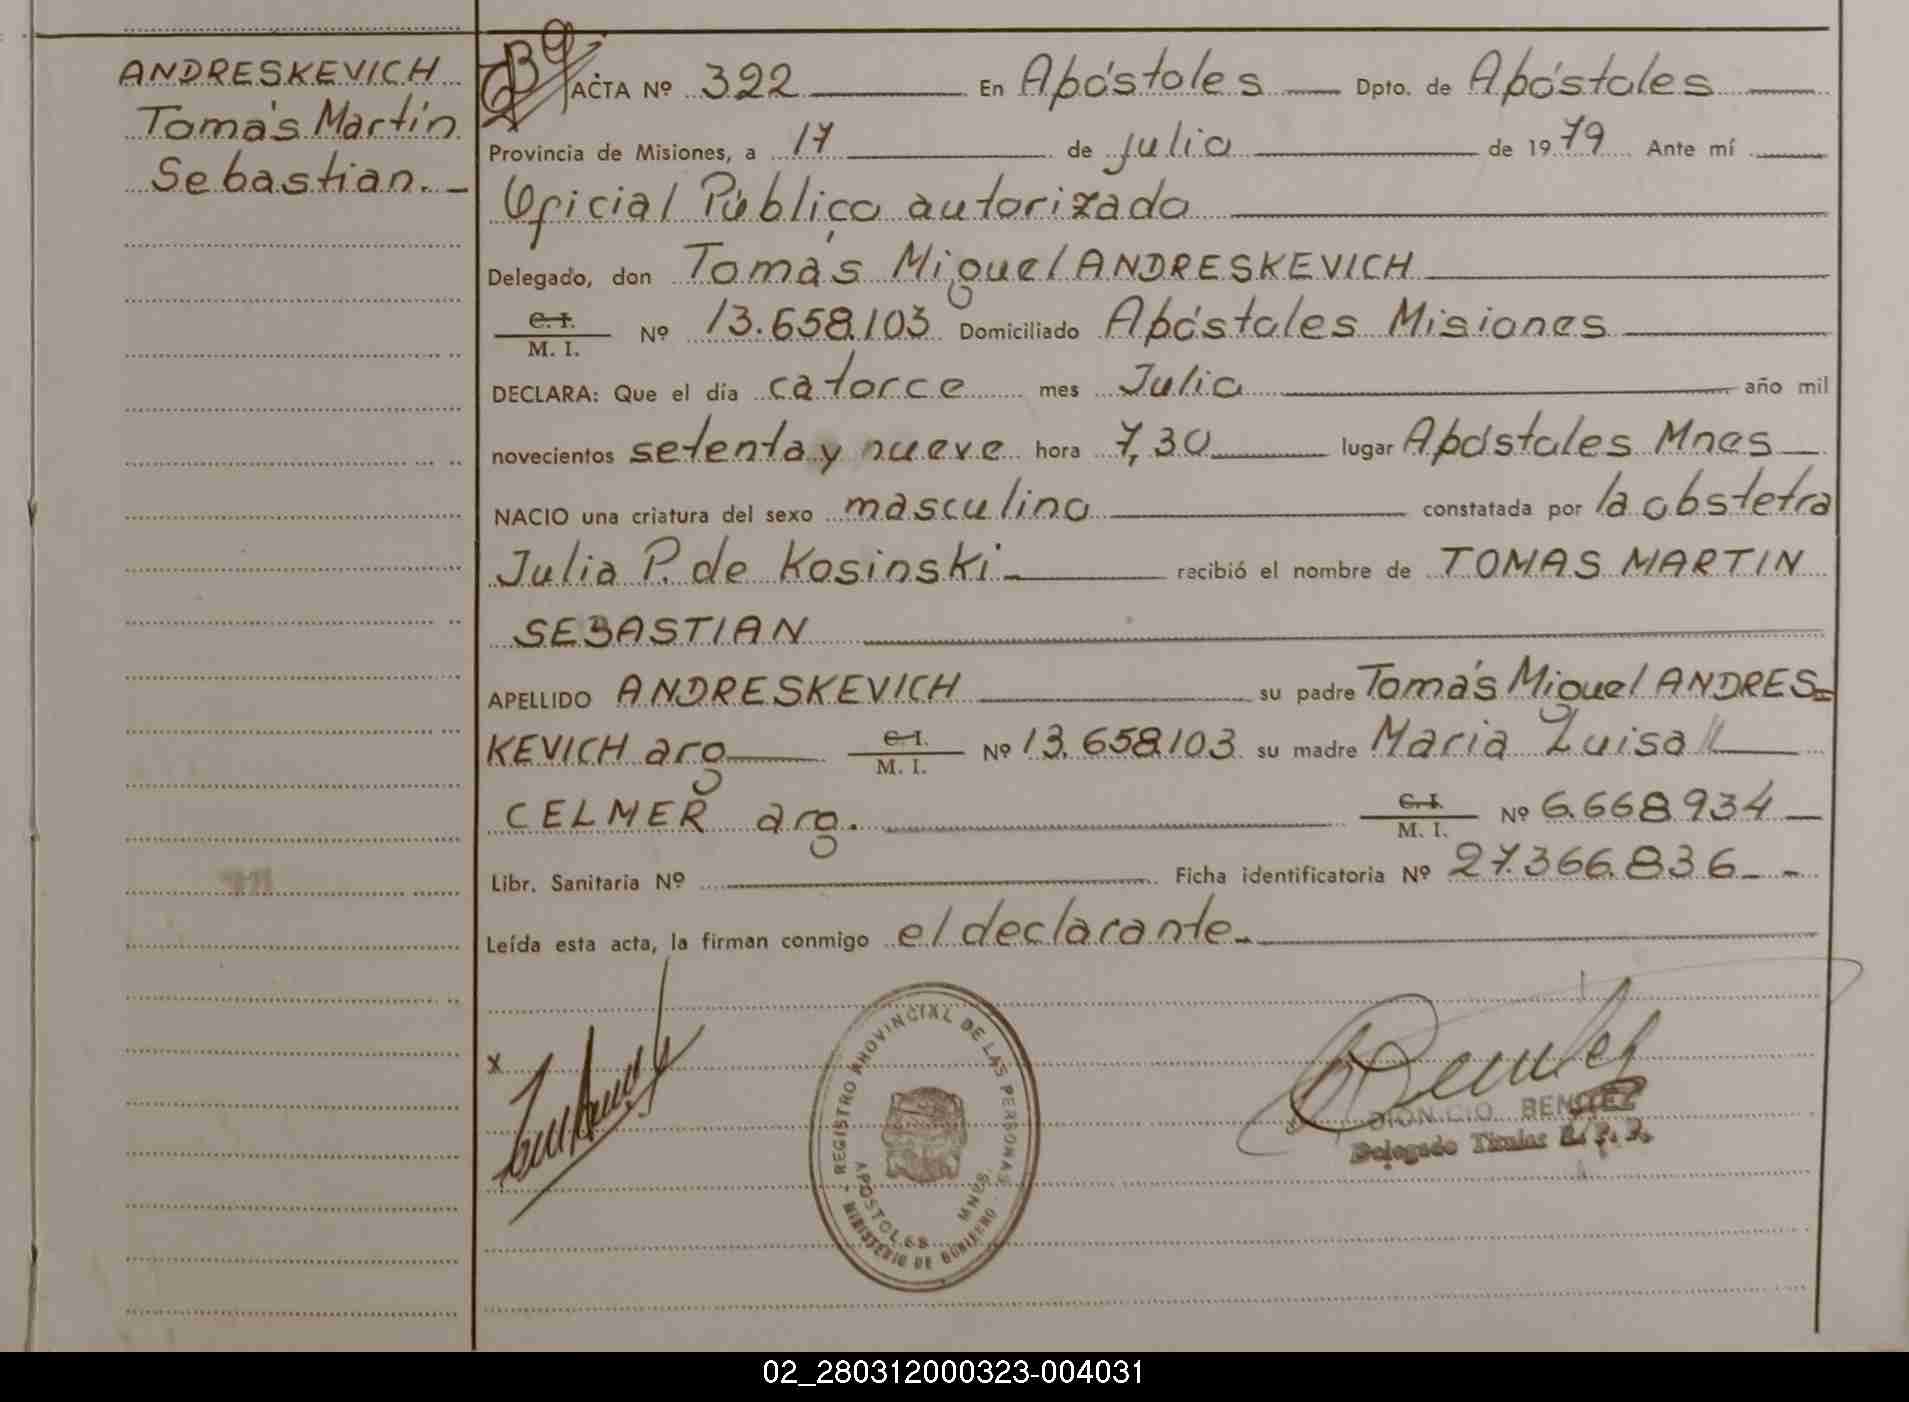 ANDRESKEVICH
Tomás Martín
Sebastian. -
ACTA Nº 322 En Apóstoles Dpto. de Apóstoles
Provincia de Misiones, a 17 de julio de 1979 Ante mí
Oficial Público autorizado
Delegado, don Tomás Miguel ANDRESKEVICH
C. I.
M. I.
Nº 13.658.103 Domiciliado Apóstoles Misiones
DECLARA: Que el día catorce mes Julio año mil
novecientos setenta y nueve hora 7,30 lugar Apóstoles Mnes
NACIO una criatura del sexo masculino constatada por la obstetra
Julia P. de Kosinski recibió el nombre de TOMAS MARTIN
SEBASTIAN
APELLIDO ANDRESKEVICH su padre Tomás Miguel ANDRES=
KEVICH arg C. I. M. I. Nº 13.658.103 su madre Maria Luisa
CELMER arg. C. I. M. I. Nº 6.668.934
Libr. Sanitaria Nº Ficha identificatoria Nº 27.366.836
Leída esta acta, la firman conmigo el declarante.
x
REGISTRO PROVINCIAL DE LAS PERSONAS
APOSTOLES MNES.
MINISTERIO DE GOBIERNO
DIONICIO BENITEZ
Delegado Titular R. P. P.
02_280312000323-004031